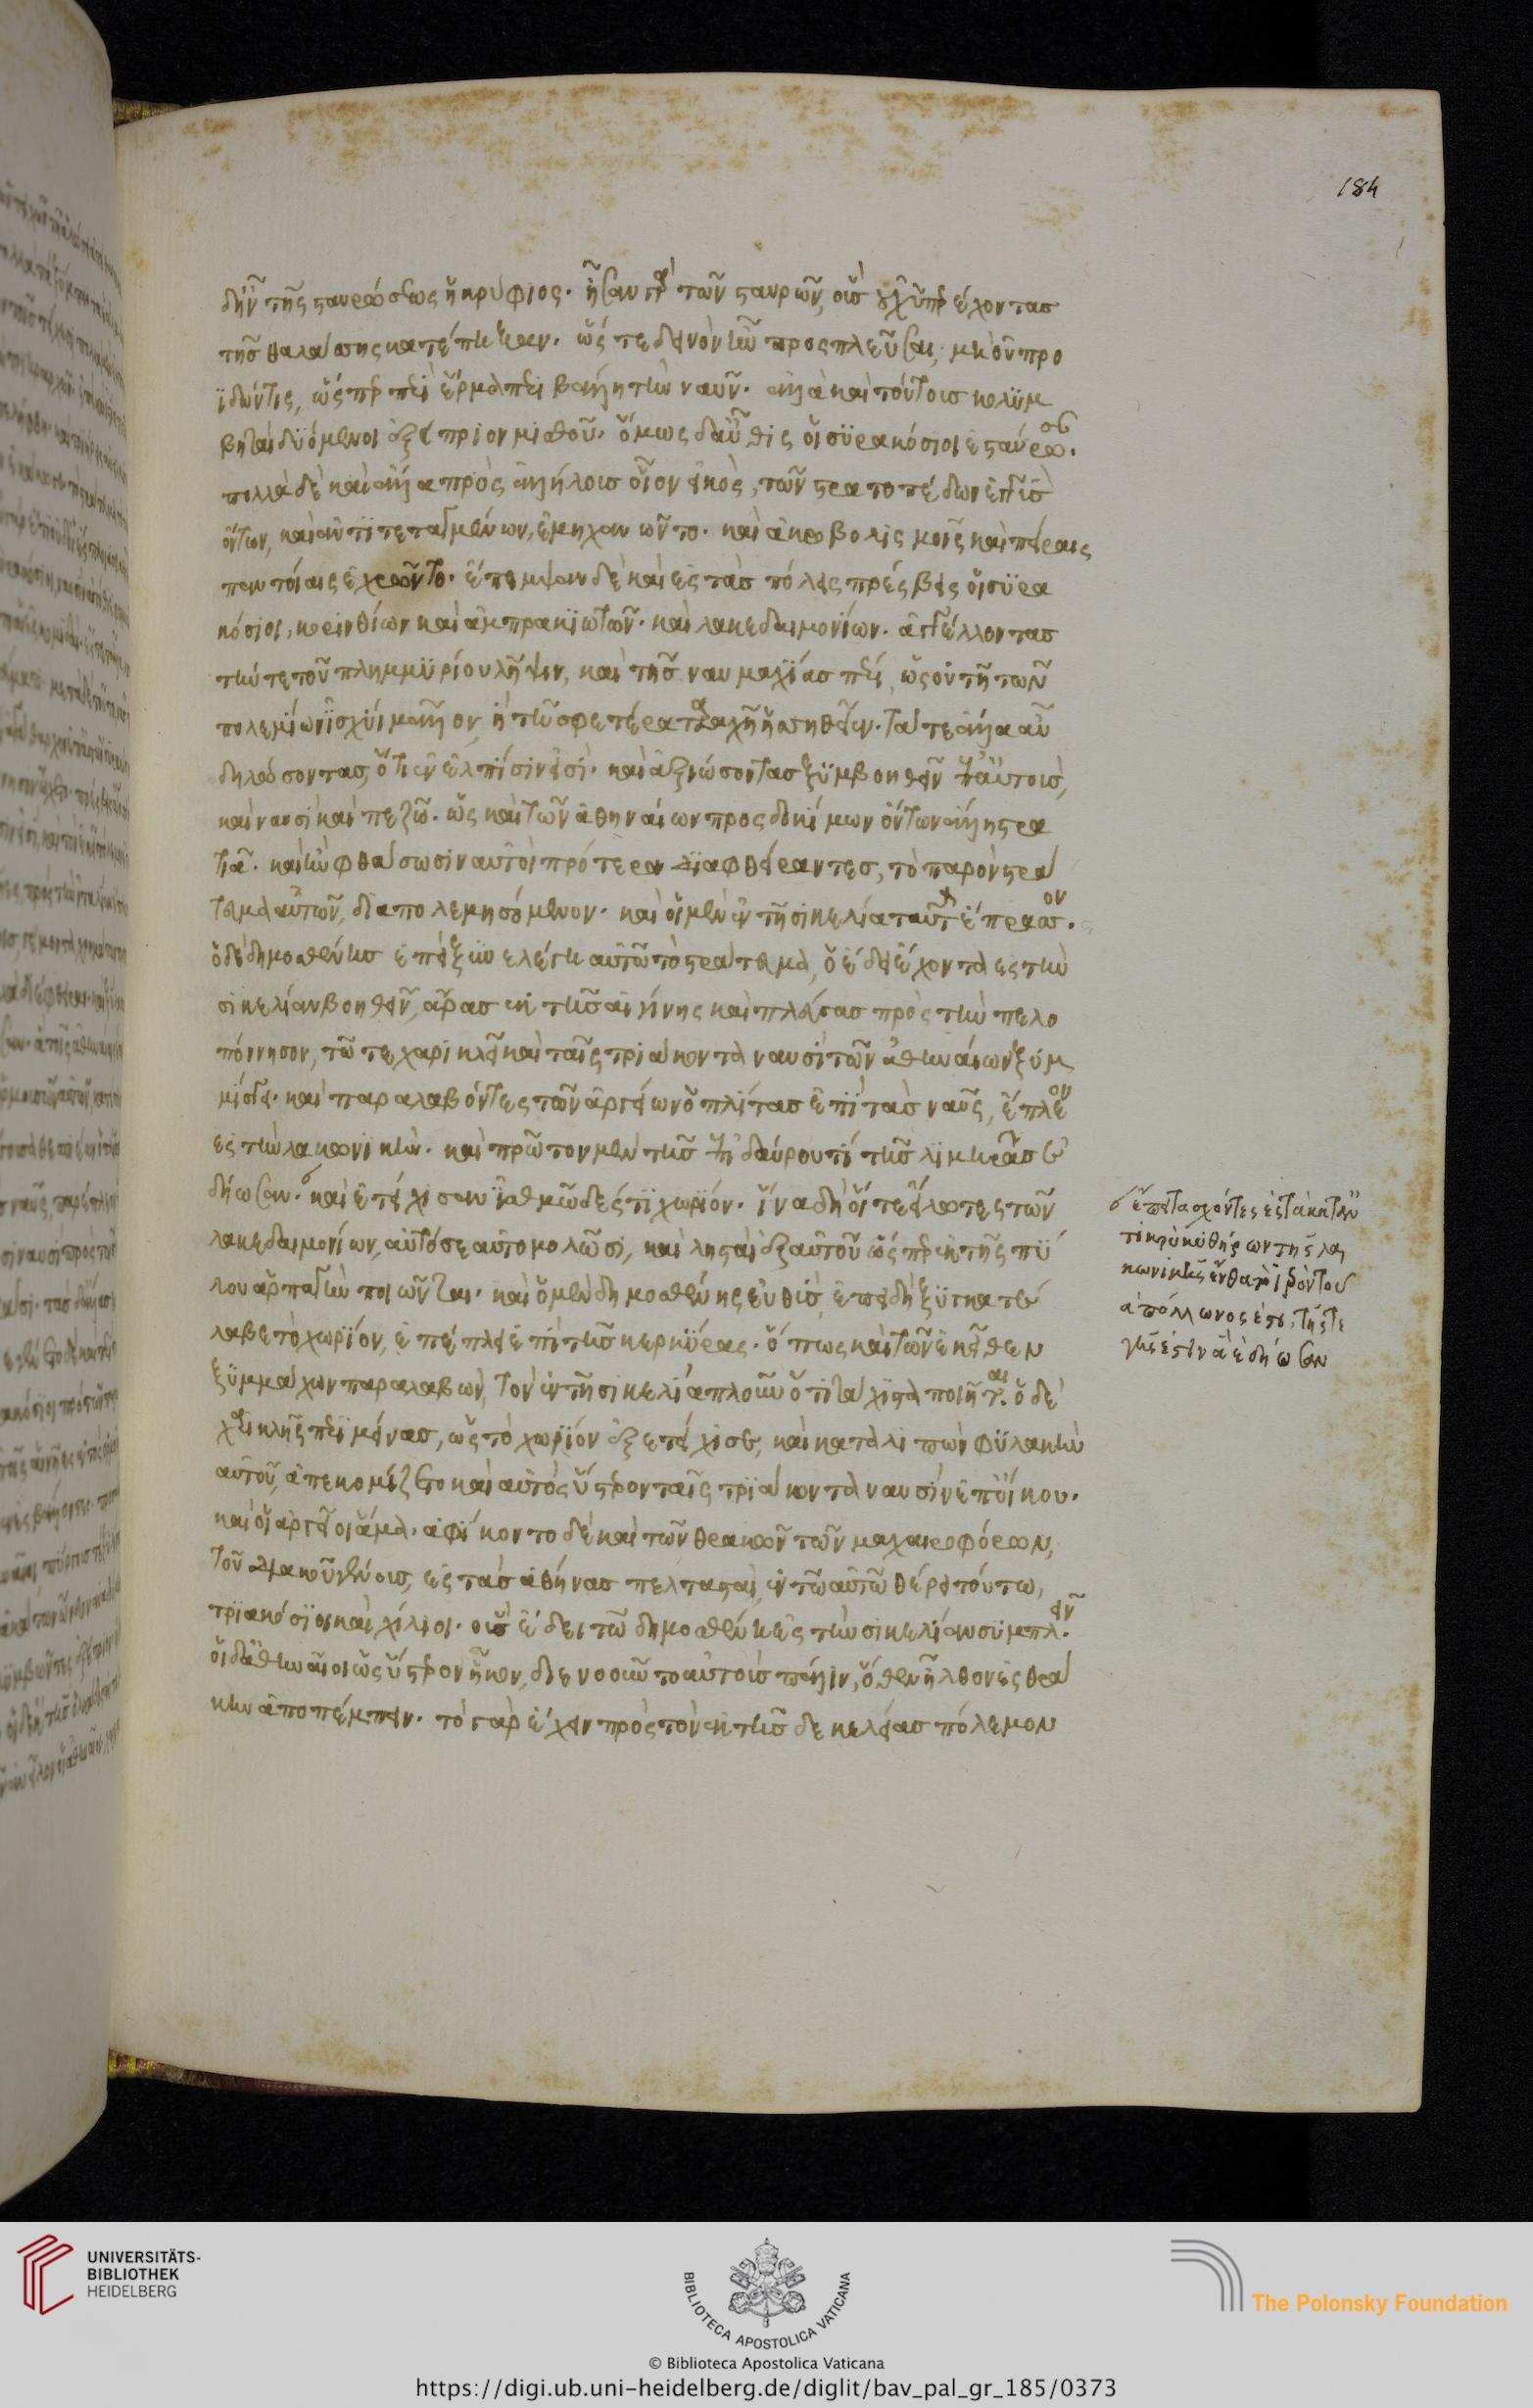 δὴν τῆς σταυρώσεως ἡ κρύφιος. ἦσαν γὰρ τῶν σταυρῶν, οὓς οὐχ ὑπερέχοντας
τῆς θαλάσσης κατέπηξαν. ὥστε δεινὸν ἦν προσπλεῦσαι, μὴ οὐ προ
ϊδών τις, ὥσπερ περὶ ἕρμα περιβάλλῃ τὴν ναῦν. ἀλλὰ καὶ τούτους κολυμ
βηταὶ δυόμενοι ἐξέπριον μισθοῦ. ὅμως δ' αὖθις οἱ συρακόσιοι ἐσταύρωσαν.
πολλὰ δὲ καὶ ἄλλα πρὸς ἀλλήλους οἷον εἰκὸς, τῶν στρατοπέδων ἐγγὺς
ὄντων, καὶ ἀντιτεταγμένων, ἐμηχανῶντο. καὶ ἀκροβολισμοῖς καὶ πείραις
παντοίαις ἐχρῶντο. ἔπεμψαν δὲ καὶ ἐς τὰς πόλεις πρέσβεις οἱ συρα
κόσιοι, κορινθίων καὶ ἀμπρακιωτῶν. καὶ λακεδαιμονίων. ἀγγέλλοντας
τήν τε τοῦ πλημμυρίου λῆψιν, καὶ τῆς ναυμαχίας πέρι, ὡς οὐ τῇ τῶν
πολεμίων ἰσχύι μᾶλλον, ἢ τῇ σφετέρᾳ ταραχῇ ἡσσηθεῖεν. τά τε ἄλλα αὖ
δηλώσοντας, ὅτι ἐν ἐλπίσιν εἰσὶ. καὶ ἀξιώσοντας ξυμβοηθεῖν ἐπ' αὐτοὺς,
καὶ ναυσὶ καὶ πεζῷ. ὡς καὶ τῶν ἀθηναίων προσδοκίμων ὄντων ἄλλῃ στρα
τιᾷ. καὶ ἢν φθάσωσιν αὐτοὶ πρότερον διαφθείραντες, τὸ παρὸν στρά
τευμα αὐτῶν, διαπολεμησόμενον. καὶ οἱ μὲν ἐν τῇ σικελίᾳ ταῦτ' ἔπρασσον.
ὁ δὲ δημοσθένης ἐπεὶ ξυνελέγη αὐτῷ τὸ στράτευμα, ὃ ἔδει ἔχοντα ἐς τὴν
σικελίαν βοηθεῖν, ἄρας ἐκ τῆς αἰγίνης καὶ πλεύσας πρὸς τὴν πελο
πόννησον, τῷ τε χαρικλεῖ καὶ ταῖς τριάκοντα ναυσὶ τῶν ἀθηναίων ξυμ
μίσγει. καὶ παραλαβόντες τῶν ἀργείων ὁπλίτας ἐπὶ τὰς ναῦς, ἔπλεον
ἐς τὴν λακωνικὴν. καὶ πρῶτον μὲν τῆς ἐπιδαύρου τι τῆς λιμηρᾶς ἐ
δῄωσαν. καὶ ἐτείχισαν ἰσθμῶδές τι χωρίον. ἵνα δὴ οἵ τε εἵλωτες τῶν
λακεδαιμονίων, αὐτόσε αὐτομολῶσι, καὶ λῃσταὶ ἐξ αὐτοῦ ὥσπερ ἐκ τῆς πύ
λου ἁρπαγὴν ποιῶνται. καὶ ὁ μὲν δημοσθένης εὐθὺς, ἐπειδὴ ξυγκατέ
λαβε τὸ χωρίον, ἐπέπλει ἐπὶ τῆς κερκύρας. ὅπως καὶ τῶν ἐκεῖθεν
ξυμμάχων παραλαβὼν, τὸν ἐν τῇ σικελίᾳ πλοῦν ὅτι τάχιστα ποιῆται. ὁ δὲ
χαρικλῆς περιμείνας, ὡς τὸ χωρίον ἐξετείχισε, καὶ καταλιπὼν φυλακὴν
αὐτοῦ, ἀπεκομίζετο καὶ αὐτὸς ὕστερον ταῖς τριάκοντα ναυσὶν ἐπ' οἴκου.
καὶ οἱ ἀργεῖοι ἅμα. ἀφίκοντο δὲ καὶ τῶν θρακῶν τῶν μαχαιροφόρων,
τοῦ διακοῦ γένους, ἐς τὰς ἀθήνας πελτασταὶ, ἐν τῷ αὐτῷ θέρει τούτω,
τριακόσιοι καὶ χίλιοι. οὓς ἔδει τῷ δημοσθένει ἐς τὴν σικελίαν συμπλεῖν.
οἱ δ' ἀθηναῖοι ὡς ὕστερον ἧκον, διενοοῦντο αὐτοὺς πάλιν, ὅθεν ἦλθον ἐς θρᾴ
κην ἀποπέμπειν. τὸ γὰρ ἔχειν πρὸς τὸν ἐκ τῆς δεκελείας πόλεμον
ἔπειτα σχόντες ἐς τὰ καταν
τικρὺ κυθήρων τῆς λα
κωνικῆς ἔνθα τὸ ἱερὸν τοῦ
ἀπόλλωνος ἐστι, τῆς τε
γῆς ἔστιν ἃ ἐδῄωσαν
184
UNIVERSITÄTS-
BIBLIOTHEK
HEIDELBERG
BIBLIOTECA APOSTOLICA VATICANA
The Polonsky Foundation
© Biblioteca Apostolica Vaticana
https://digi.ub.uni-heidelberg.de/diglit/bav_pal_gr_185/0373